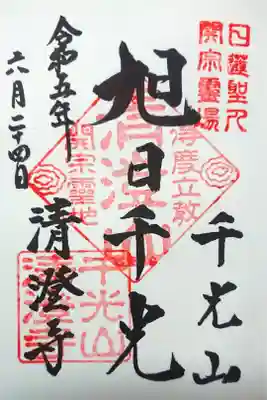 日蓮聖人
開宗霊場
千光山
旭日千光
清澄寺
令和五年
六月二十四日
清澄寺
得度立教
開宗霊地
千光山
清澄寺